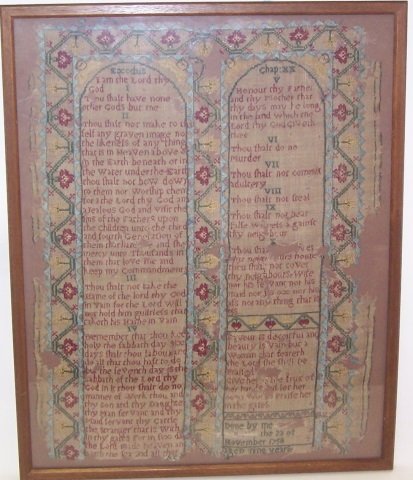 Exodus
I am the Lord thy
God
Thou shalt have none
other Gods but me
II
Thou shalt not make to thy
self any graven image nor
the likeness of any thing
that is in Heaven above or
in the Earth beneath or in
the Water under the Earth
Thou shalt not bow down
to them nor Worship them
for I the Lord thy God am
a Jealous God and visit the
sins of the Fathers upon
the Children unto the third
and fourth Generation of
them that hate and shew
mercy unto Thousands in
them that love me and
keep my Commandments
III
Thou shalt not take the
Name of the lord thy God
in Vain for the Lord will
not hold him guiltless that
taketh his Name in Vain
IV
Remember that thou keep
holy the sabbath day six
days shalt thou labour and
do all that thou hast to do
but the seventh day is the
Sabbath of the Lord thy
God in it thou shalt do no
manner of Work thou and
thy son and thy Daughter
thy Man servant and thy
Maid servant thy Cattle
the stranger that is With
in thy gates For in six days
the Lord made Heaven and
Earth the sea and all that
Chap: XX
V
Honour thy Father
and thy Mother that
thy days may be long
in the land Which the
Lord thy God Giveth
thee
VI
Thou shalt do no
Murder
VII
Thou shalt not commit
Adultery
VIII
Thou shalt not steal
IX
Thou shalt not bear
false Witness against
thy
X
Thou shalt
thy neighbours house
thou shalt not covet
thy neighbours Wife
nor his servant nor his
maid nor his ox nor his
ass nor any thing that is
Favour is deceitful and
beauty is Vain but a
Woman that feareth
the Lord she shall be
Praised
Give her of the fruit of
her
own Works Praise her
in the gates
Done by me
the 22 of
November 1758
Aged nine years